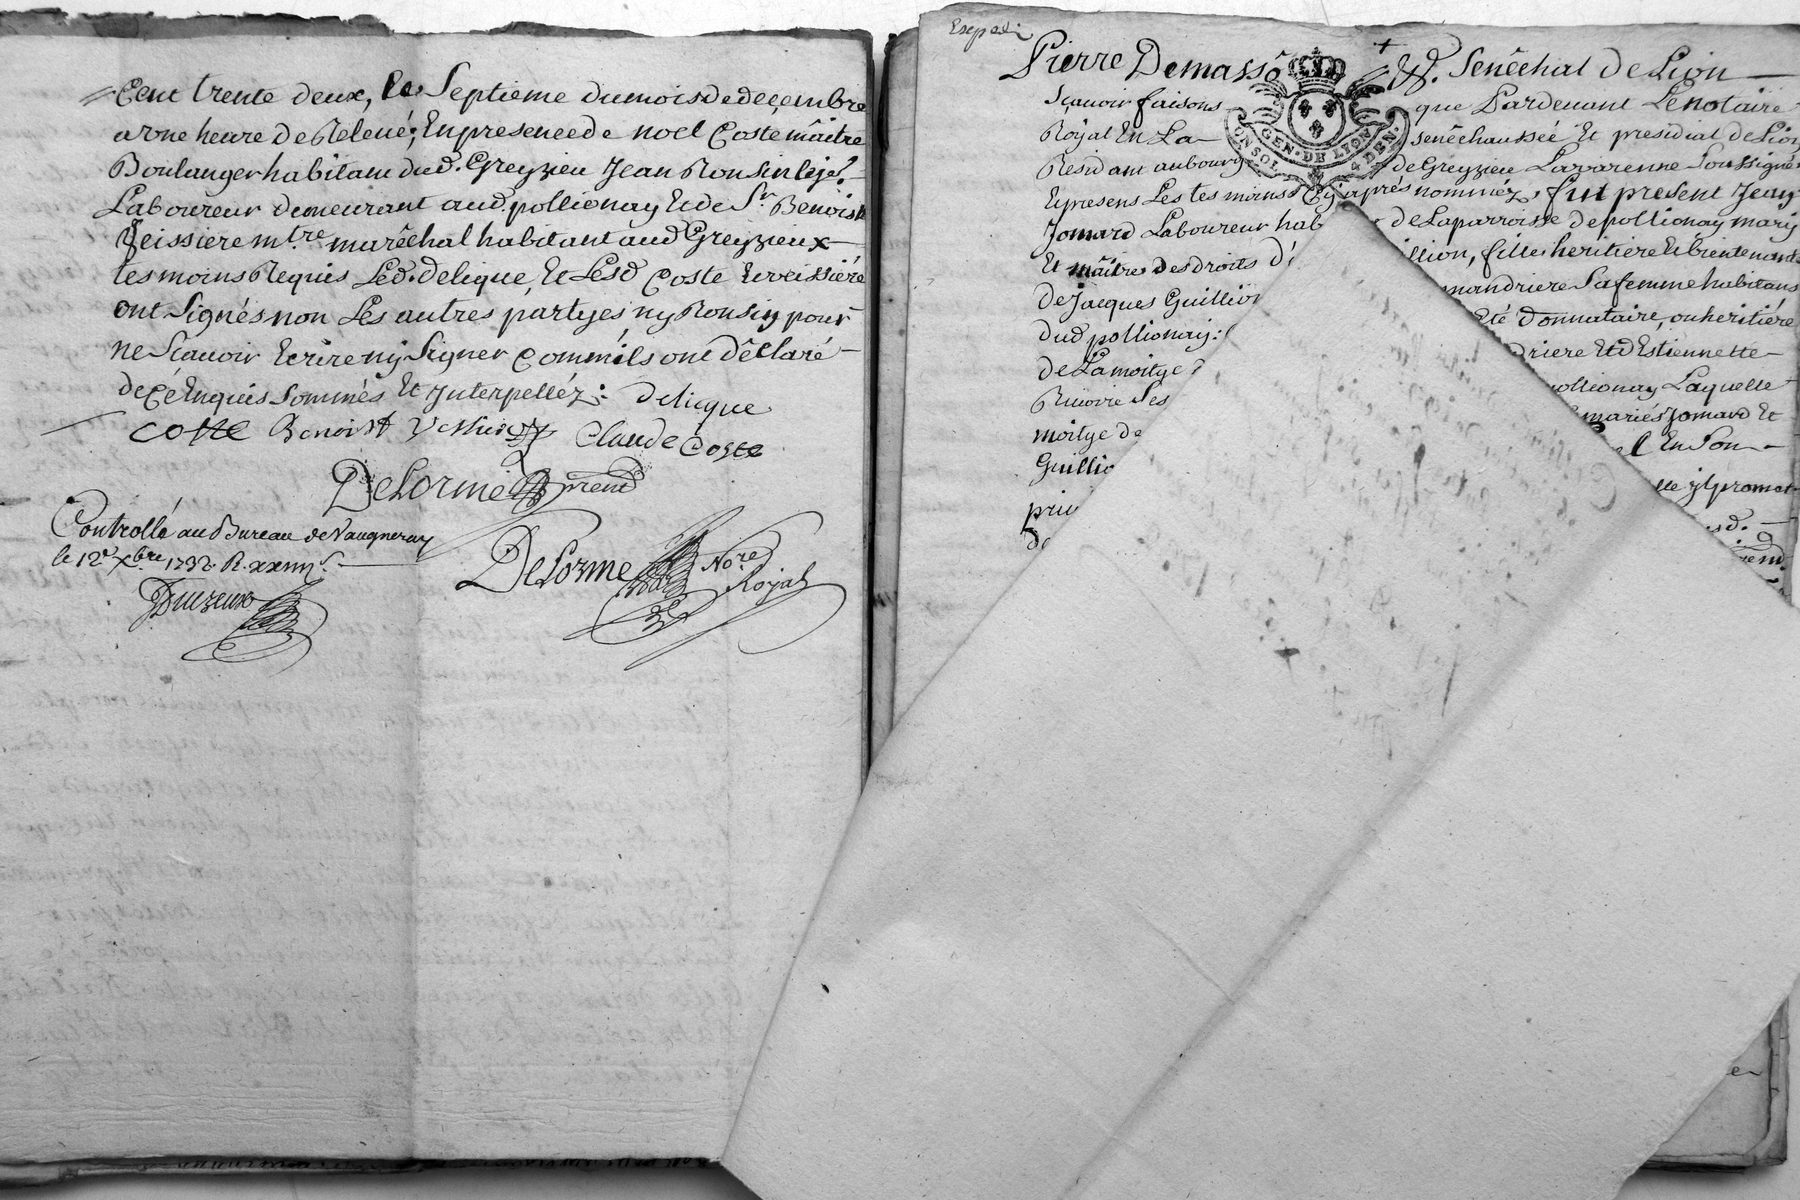 Cent trente deux, Le Septieme du mois de decembre
a une heure de Relevé; En presence de noel Coste mâitre
Boulanger habitant dud. Greyzieu Jean Ronsin
Laboureur demeurant aud. pollionay Et de Sr. Benoist
Veissiere mtre marêchal habitant aud Greyzieux
tesmoins Requis Led. delique, Et Lesd Coste Et veissiére
ont Signés non Les autres partyes ny Ronsin pour
ne Scavoir Ecrire ny Signer Comm'ils ont dêclaré
de cé Enquis Sommés Et Interpelléz: delique
coste Benoist Claude Coste
DeLorme
Controllé au Bureau de Vaugneray
le 12e xbre 1732. R.
DeLorme Nore
Royal
Exped
Pierre Demassô Senêchal De Lion
Scavoir faisons que Pardevant Le notaire
Royal En La senêchaussée Et presidial de Lion
Residant au bourg de Greyzieu Lavarenne Soussigné
Et presens Les tesmoins Cy aprés nomméz, fut present Jean
Jomard Laboureur hab de La parroisse de pollionay mary
Et mâitre des droits d' llion, fille heritiere Et bientenante
de Jacques Guillion mandriere Sa femme habitans
dud pollionay: Eté donnataire, ou heritiére
de La moitye driere Et d'Estiennette
Riuoire Ses pollionay Laquelle
moitye de mariés Jomard Et
Guillio En Son
priu ylpromet
de sd.